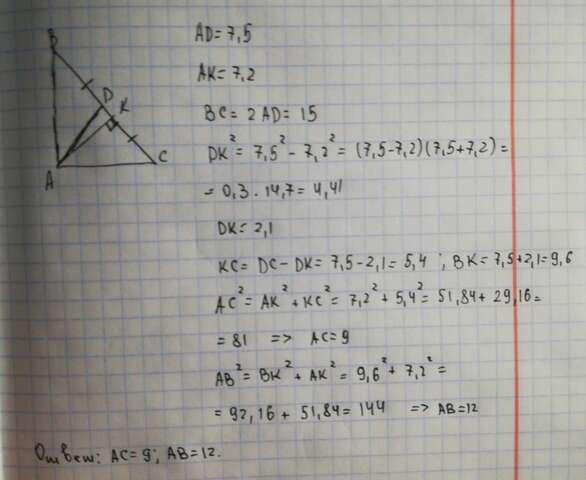 AD=7,5
AK=7,2
BC=2AD=15
DK²=7,5²-7,2²=(7,5-7,2)(7,5+7,2)=
=0,3·14,7=4,41
DK=2,1
KC=DC-DK=7,5-2,1=5,4; BK=7,5+2,1=9,6
AC²=AK²+KC²=7,2²+5,4²=51,84+29,16=
=81 => AC=9
AB²=BK²+AK²=9,6²+7,2²=
=92,16+51,84=144 => AB=12
Ответ: AC=9; AB=12.
B
D
K
A
C